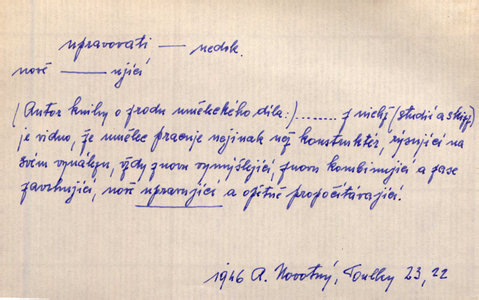 upravovati — nedok.
nově — ující
(Autor knihy o zrodu uměleckého díla:) ........ z nichž (studií a skizz)
je vidno, že umělec pracuje nejinak než konstruktér, rýsující na
svém vynálezu, vždy znovu vymýšlející, znovu kombinující a zase
zavrhující, nově upravující a opětně propočítávající.
1946 A. Novotný, Toulky 23, 22